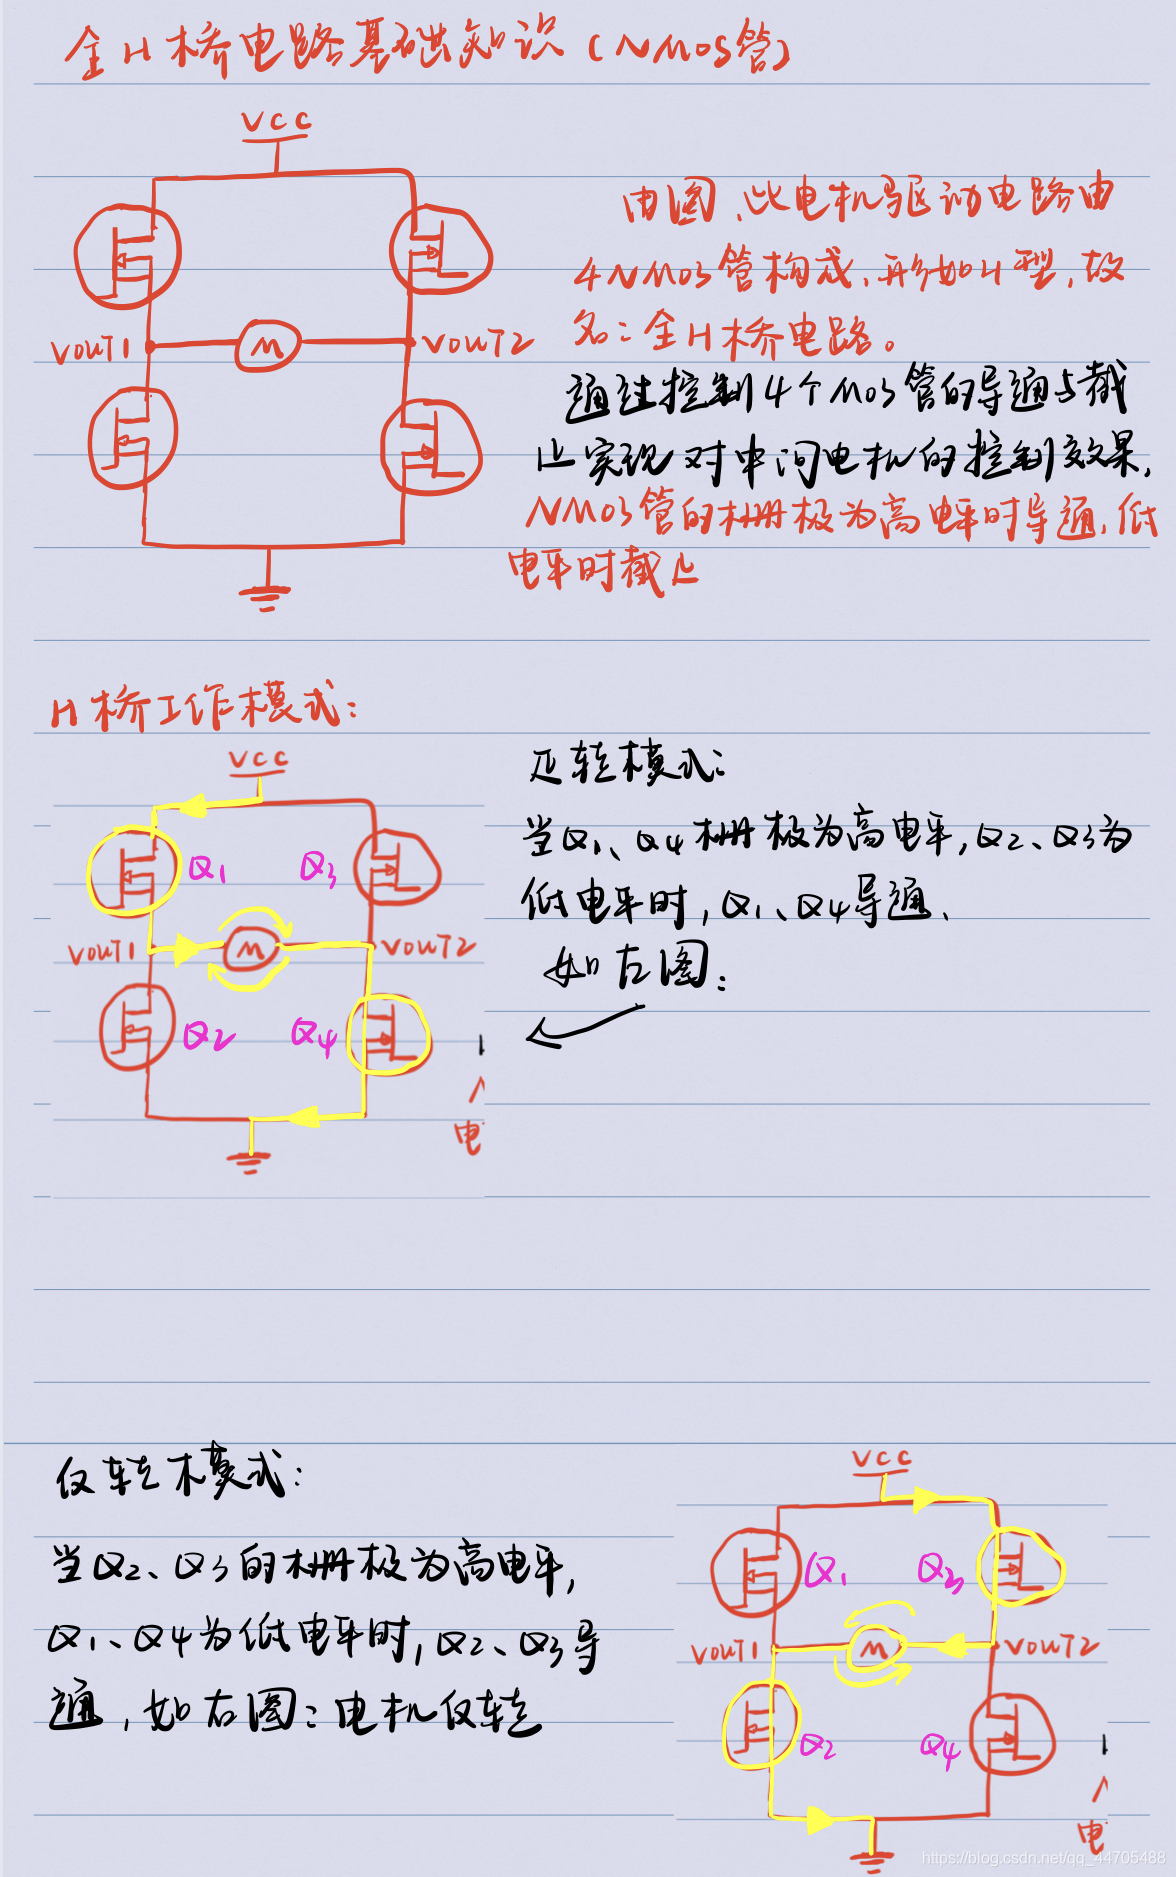 全H桥电路基础知识(NMOS管)
VCC
VOUT1
M
VOUT2
由图、此电机驱动电路由
4NMOS管构成、形如H型,故
名：全H桥电路。
通过控制4个MOS管的导通与截
止实现对中间电机的控制效果,
NMOS管的栅极为高电平时导通,低
电平时截止
H桥工作模式:
VCC
Q1
Q3
VOUT1
M
VOUT2
Q2
Q4
电
正转模式:
当Q1、Q4栅极为高电平,Q2、Q3为
低电平时,Q1、Q4导通、
如左图:
反转模式:
当Q2、Q3的栅极为高电平,
Q1、Q4为低电平时,Q2、Q3导
通,如右图:电机反转
VCC
Q1
Q3
VOUT1
M
VOUT2
Q2
Q4
电
https://blog.csdn.net/qq_44705488